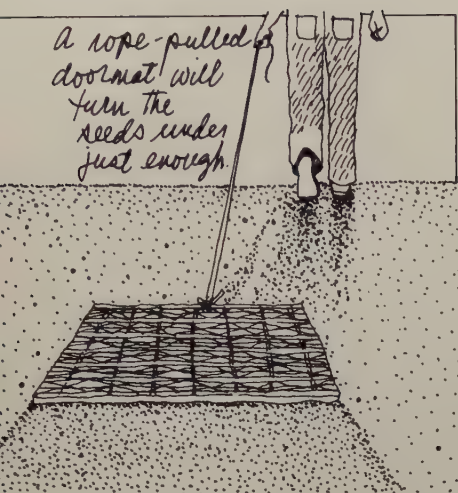 A rope-pulled
doormat will
turn the
seeds under
just enough.